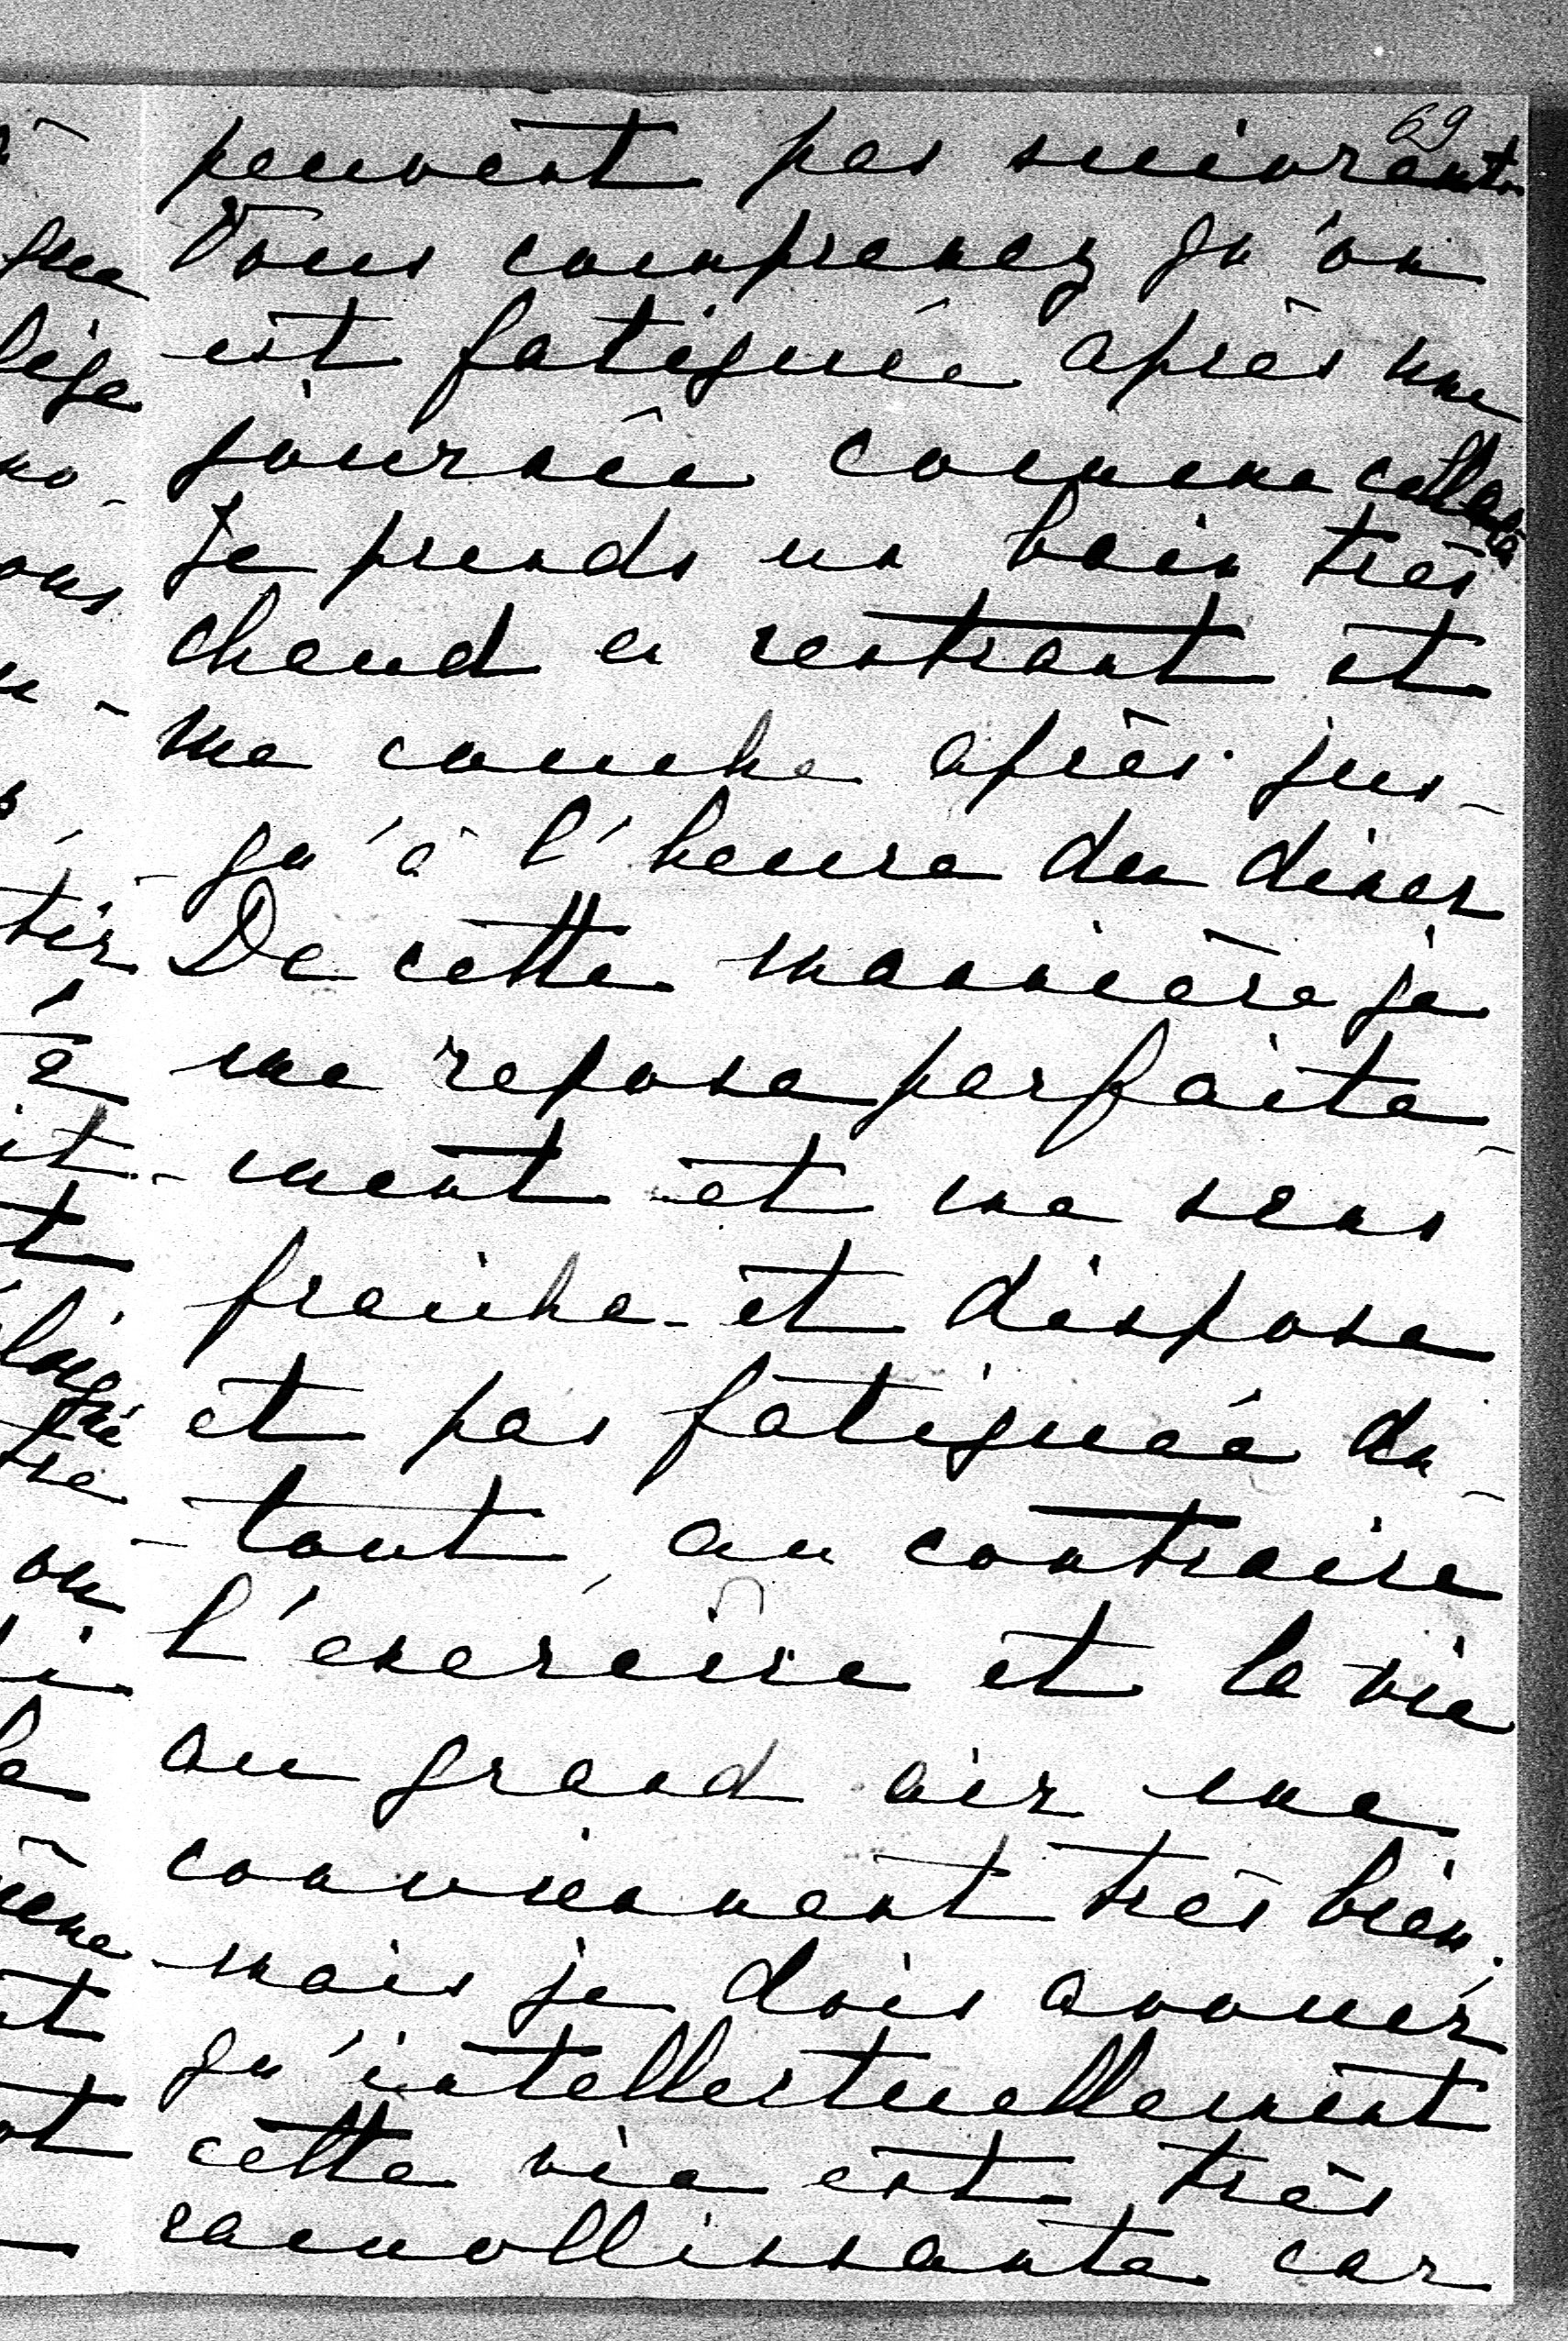 69
peuvent pas suivre
Vous comprenez qu'on
est fatiguée après une
journée comme cella
Je prends un bain très
chaud en rentrant et
me couche après jus-
-qu'à l'heure du diner
De cette mannière je
me repose parfaite-
-ment et me sens
fraiche et dispose
et pas fatiguée du-
-tout, au contraire
L'exercice et la vie
au grand air me
conviennent très bien,
mais je dois avouer
qu'intellectuellement
cette vie est très
ramollissante car